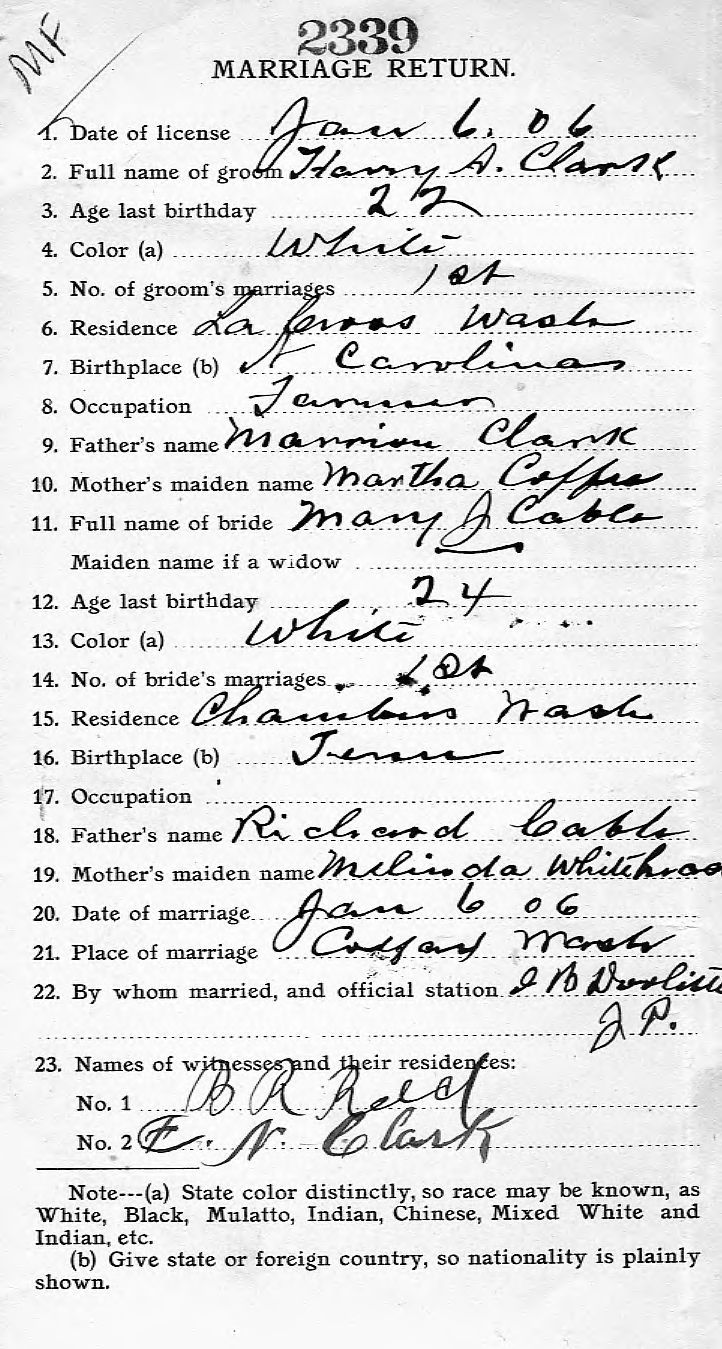 MF
2339
MARRIAGE RETURN.
1. Date of license Jan 6. 06
2. Full name of groom Harry A. Clark
3. Age last birthday 22
4. Color (a) White
5. No. of groom's marriages 1st
6. Residence La Cross Wash
7. Birthplace (b) N Carolina
8. Occupation Farmer
9. Father's name Marrion Clark
10. Mother's maiden name Martha Coffee
11. Full name of bride Mary J Cable
Maiden name if a widow
12. Age last birthday 24
13. Color (a) White
14. No. of bride's marriages 1st
15. Residence Chambers Wash
16. Birthplace (b) Tenn
17. Occupation
18. Father's name Richard Cable
19. Mother's maiden name Melinda
20. Date of marriage Jan 6 06
21. Place of marriage Colfax Wash
22. By whom married, and official station
J P.
23. Names of witnesses and their residences:
No. 1 B R
No. 2 E. N. Clark
Note---(a) State color distinctly, so race may be known, as
White, Black, Mulatto, Indian, Chinese, Mixed White and
Indian, etc.
(b) Give state or foreign country, so nationality is plainly
shown.